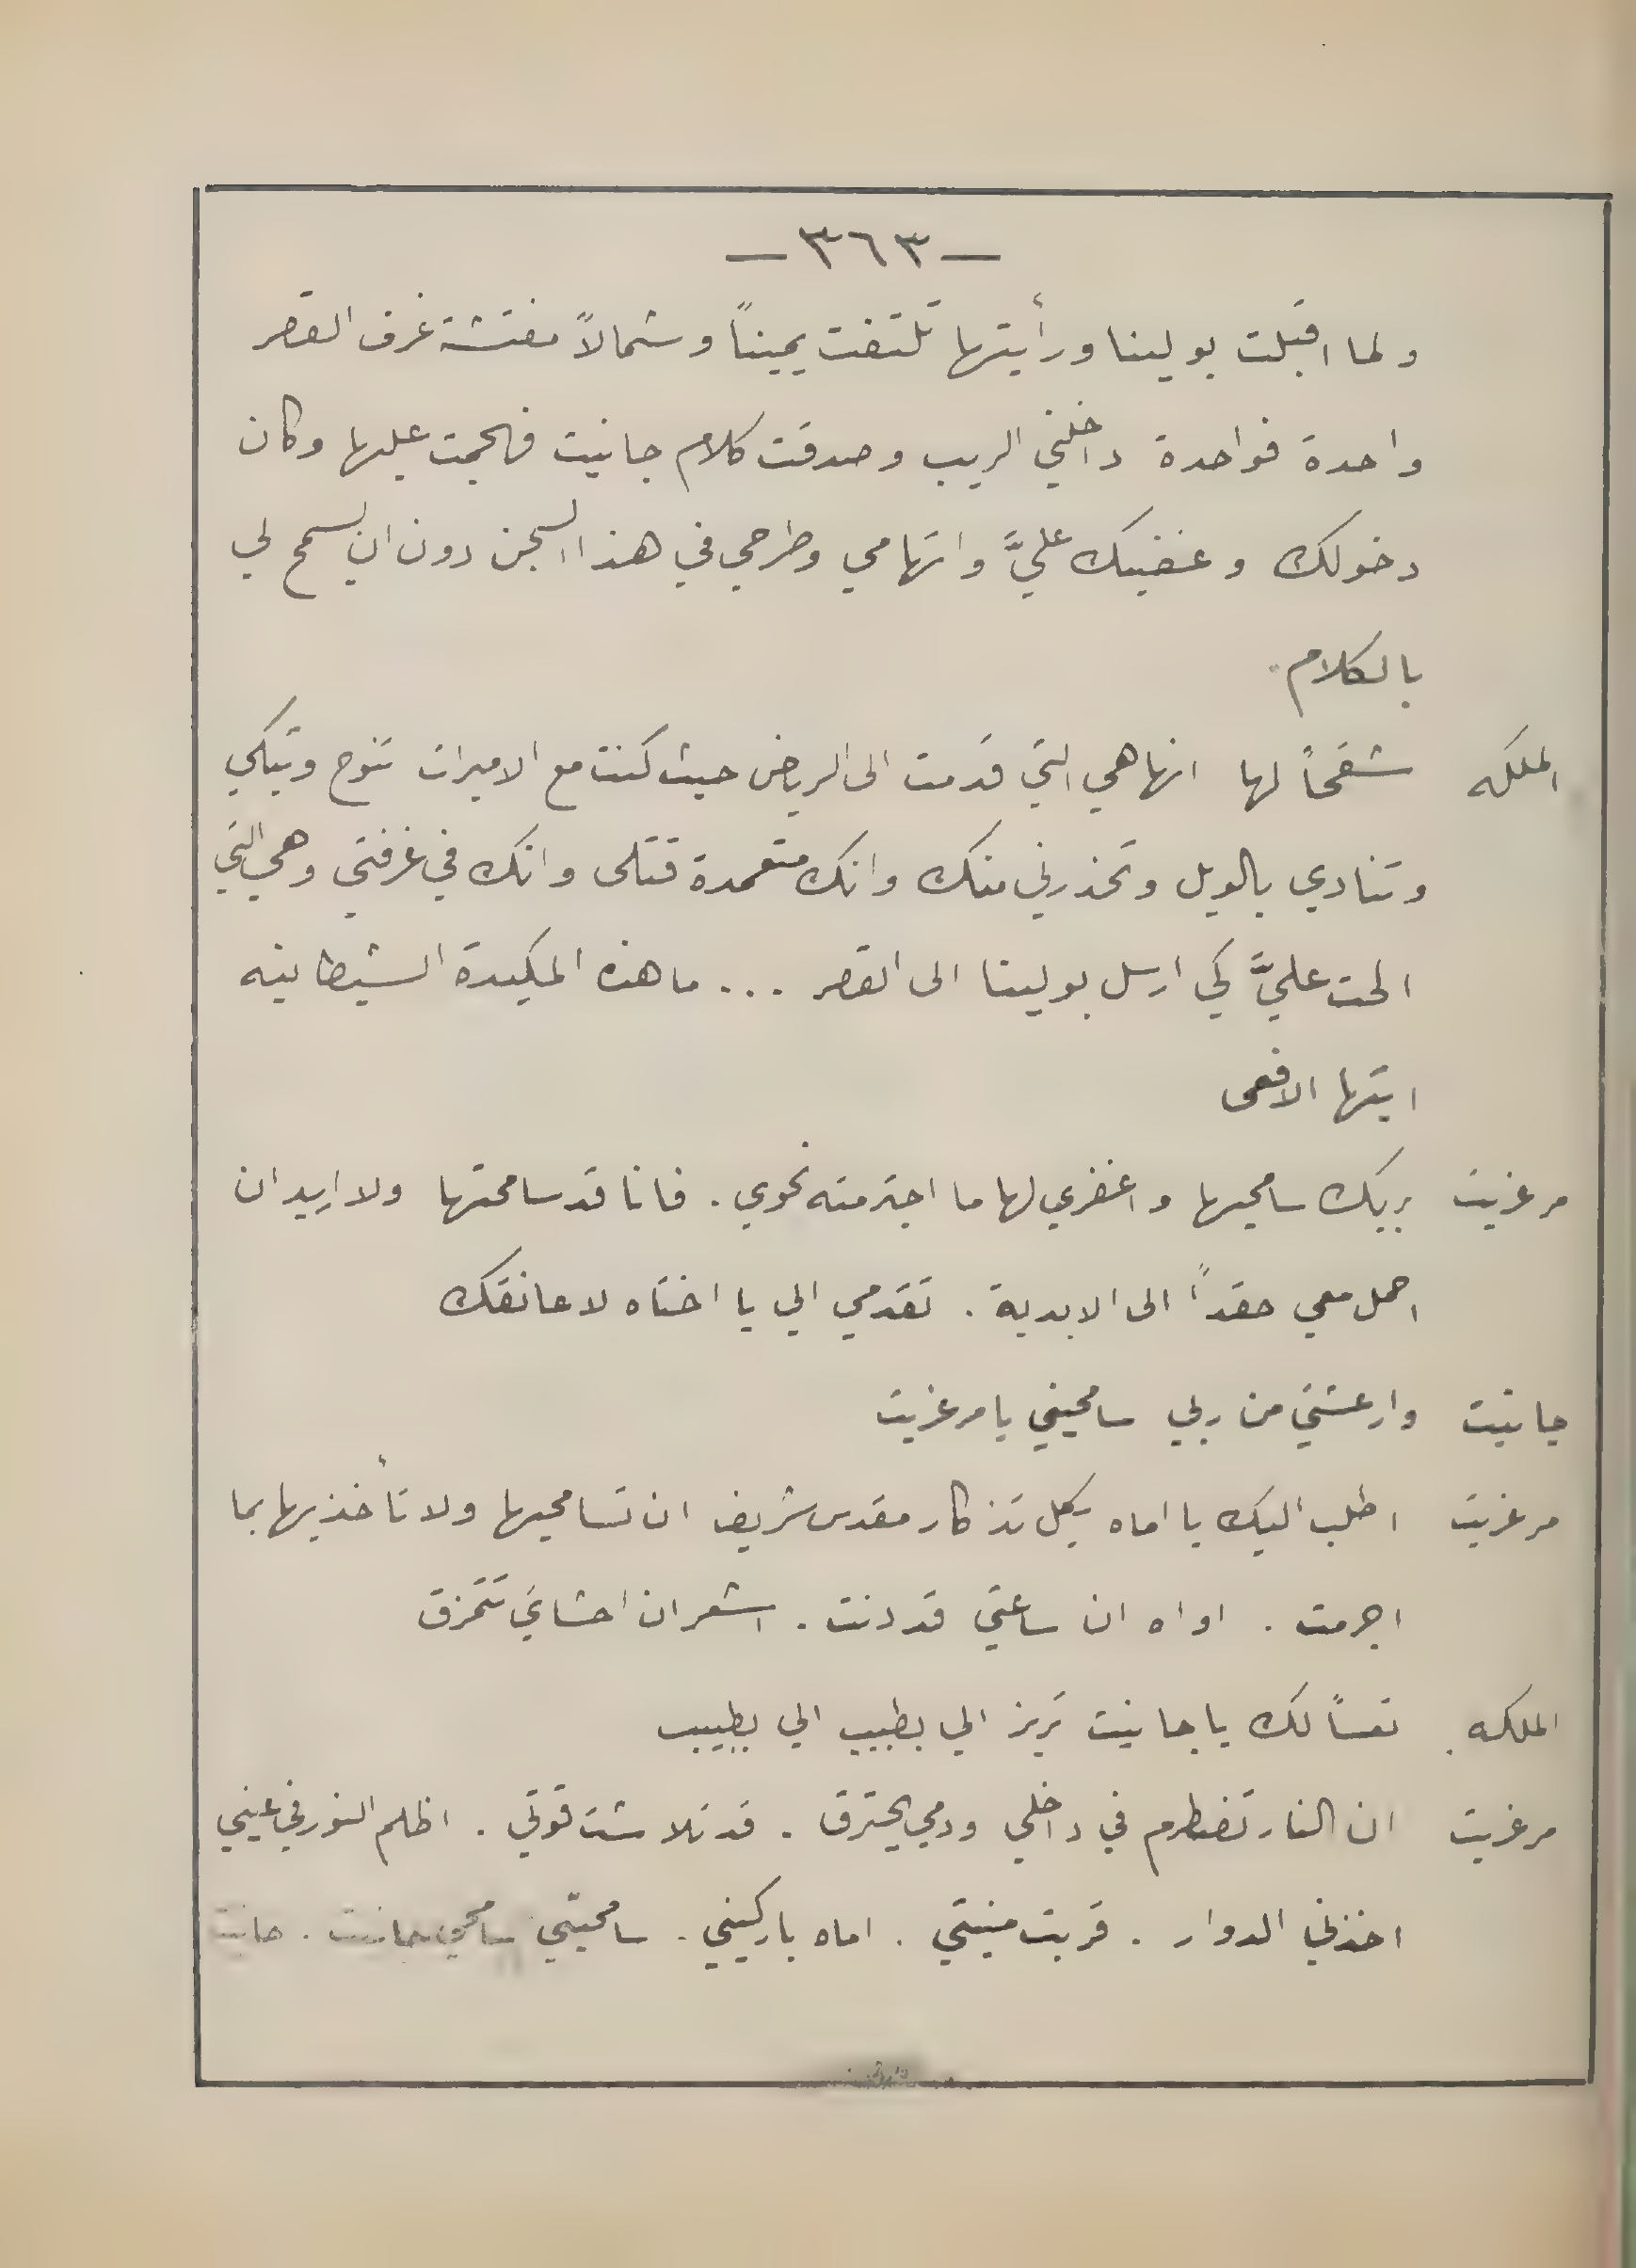 — ٣٦٣ —
ولما اقبلت بولينا ورأيتها تلتفت يميناً وشمالاً مفتشة غرف القصر
واحدة فواحدة داخلني الريب وصدقت كلام جانيت فهجمت عليها وكان
دخولك وغضبك عليَّ واتهامي وطرحي في هذا السجن دون ان يسمح لي
بالكلام .
الملكه شقحاً لها انها هي التي قدمت الى الرياض حيث كنت مع الاميرات تنوح وتبكي
وتنادي بالويل وتحذرني منك وانك متعمدة قتلى وانك في غرفتي وهي التي
الحت عليَّ كي ارسل بولينا الى القصر ... ما هذه المكيدة الشيطانيه
ايتها الافعى
مرغريت بربك سامحيها واغفري لها ما اجترمته نحوي . فانا قد سامحتها ولا اريد ان
احمل معي حقداً الى الابدية . تقدمي الي يا اختاه لاعانقك
جانيت وارعشتي من ربي سامحيني يا مرغريت
مرغريت اطلب اليك يا اماه بكل تذكار مقدس شريف ان تسامحيها ولا تأخذيها بما
اجرمت . اواه ان ساعتي قد دنت . اشعر ان احشاي تتمزق
الملكه . تعساً لك يا جانيت تريز الي بطبيب الي بطبيب
مرغريت ان النار تضطرم في داخلي ودمي يحترق . قد تلاشت قوتي . اظلم النور في عيني
اخذني الدوار . قربت منيتي . اماه باركيني . سامحيني سامحي جانيت . جانيت